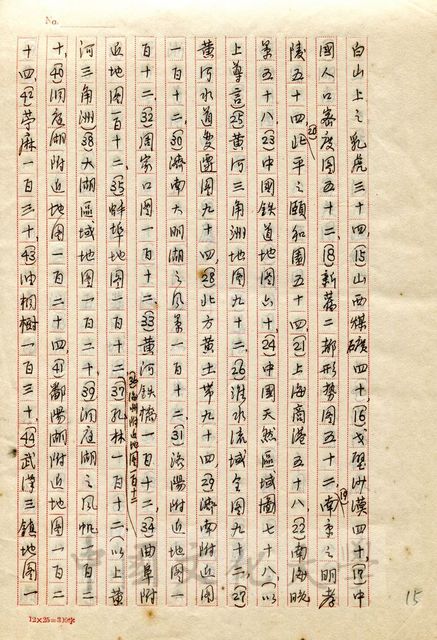 No.
白山上之乳虎三十四、(15)山西煤礦四十、(16)戈壁沙漠四十、(17)中
國人口密度圖五十二、(18)新舊二都形勢圖五十二、(19)南京之明孝
陵五十四、(20)北平之頤和園五十四、(21)上海商港五十八、(22)南海晚
景五十八、(23)中國鉄道地圖六十、(24)中國天然區域圖七十八、(以
上尊言)(25)黄河三角洲地圖九十二、(26)淮水流域全圖九十二、(27)
黄河水道變遷圖九十四、(28)北方黄土帶九十四、(29)濟南附近圖
一百十二、(30)濟南大明湖之風景一百十二、(31)洛陽附近地圖一
百十二、(32)周家口圖一百十二、(33)黄河鉄橋一百十二、(34)曲阜附
近地圖一百十二、(35)蚌埠地圖一百十二、(36)海州附近地圖一百十二、(37)孔林一百十二(以上黄
河三角洲)(38)大湖區域地圖一百二十、(39)洞庭湖之風帆一百二
十、(40)洞庭湖附近地圖一百二十四、(41)鄱陽湖附近地圖一百二
十四、(42)苧麻一百三十、(43)油桐樹一百三十、(44)武漢三鎮地圖一
15
中國文化大學
12×25=300字